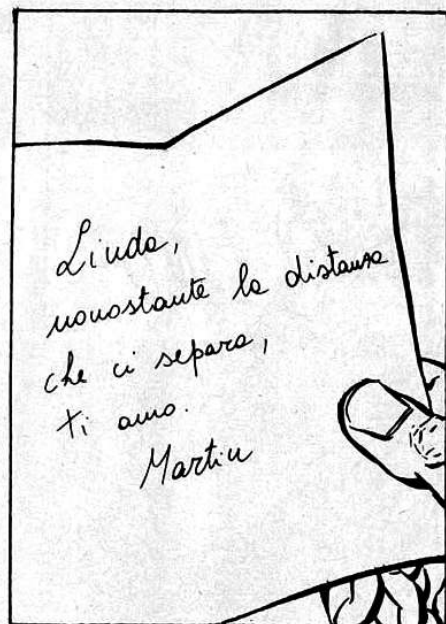 Linda,
nonostante la distanza
che ci separa,
ti amo.
Martin